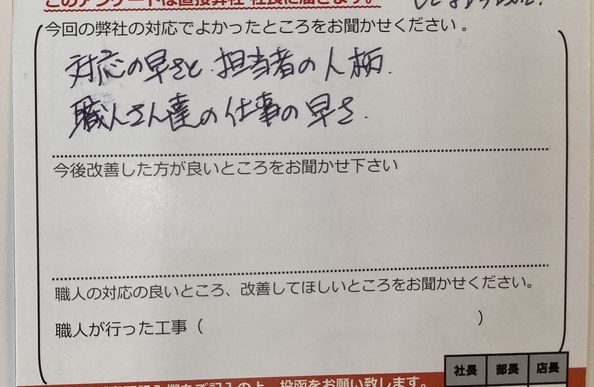 このアンケートは直接弊社 社長に届きます。
今回の弊社の対応でよかったところをお聞かせください。
対応の早さと、担当者の人柄、
職人さん達の仕事の早さ、
今後改善した方が良いところをお聞かせ下さい
職人の対応の良いところ、改善してほしいところをお聞かせください。
職人が行った工事( )
社長 部長 店長
ご記入の上、投函をお願い致します。